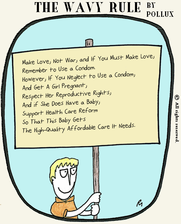 THE WAVY RULE BY POLLUX
Make Love, Not War; and If You Must Make Love,
Remember to Use a Condom
However, If You Neglect to Use a Condom,
And Get A Girl Pregnant,
Respect Her Reproductive Rights;
And if She Does Have a Baby,
Support Health Care Reform
So That This Baby Gets
The High-Quality Affordable Care It Needs.
All rights reserved.